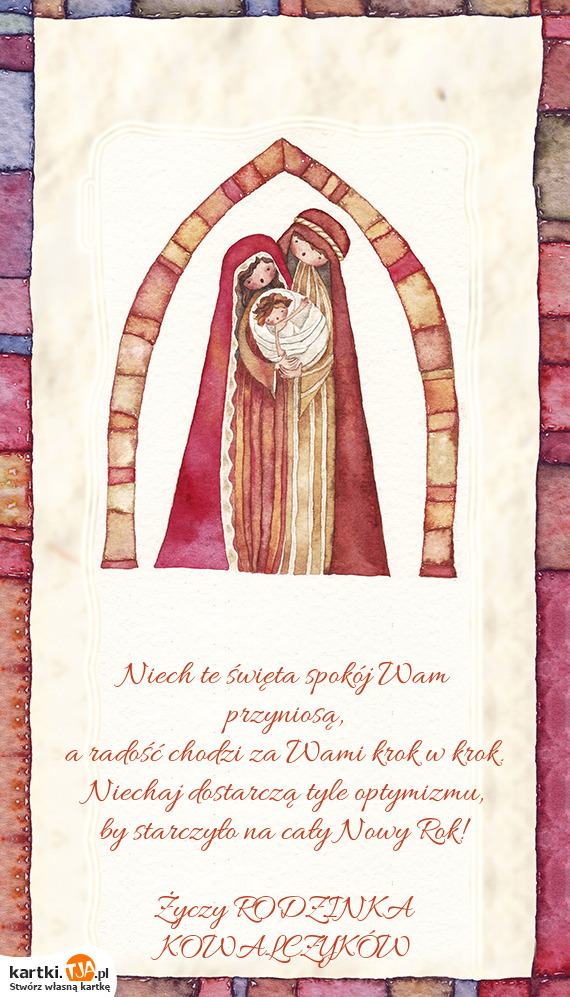 Niech te święta spokój Wam
przyniosą,
a radość chodzi za Wami krok w krok.
Niechaj dostarczą tyle optymizmu,
by starczyło na cały Nowy Rok!
Życzy RODZINKA
KOWALCZYKÓW
kartki.TJA.pl
Stwórz własną kartkę